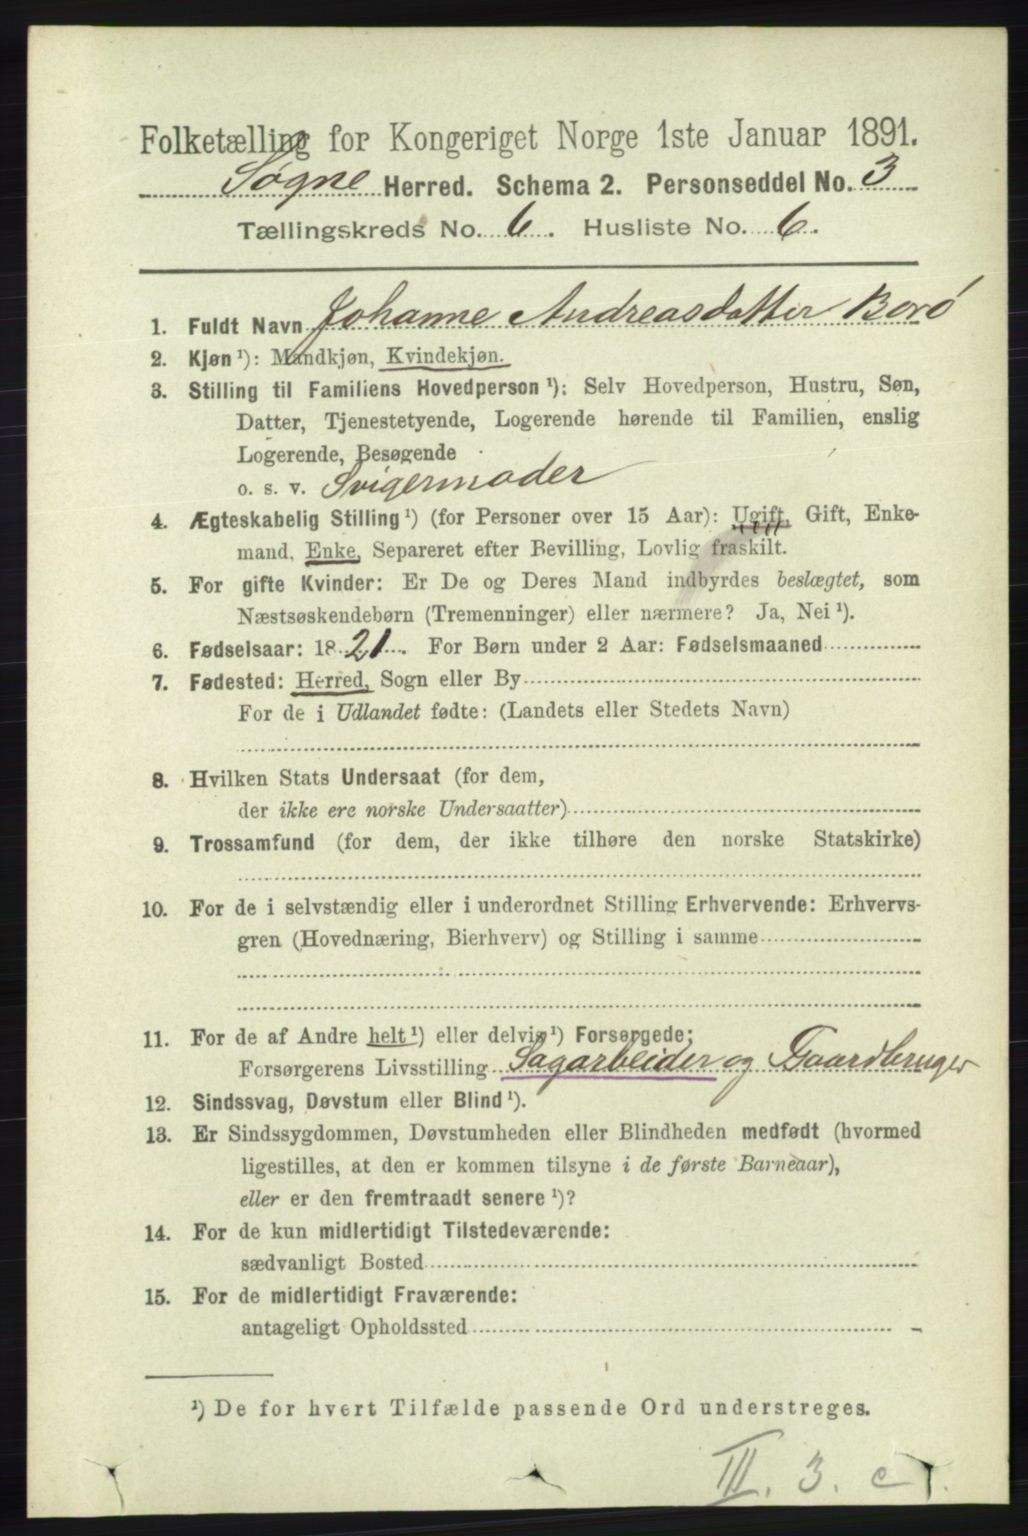 Folketælling for Kongeriget Norge 1ste Januar 1891.
Søgne Herred. Schema 2. Personseddel No. 3
Tællingskreds No. 6. Husliste No. 6.
1. Fuldt Navn Johanne Andreasdatter Borø
2. Kjøn ¹): Mandkjøn, Kvindekjøn.
3. Stilling til Familiens Hovedperson ¹): Selv Hovedperson, Hustru, Søn,
Datter, Tjenestetyende, Logerende hørende til Familien, enslig
Logerende, Besøgende
o. s. v. Svigermoder
4. Ægteskabelig Stilling ¹) (for Personer over 15 Aar): Ugift, Gift, Enke-
mand, Enke, Separeret efter Bevilling, Lovlig fraskilt.
5. For gifte Kvinder: Er De og Deres Mand indbyrdes beslægtet, som
Næstsøskendebørn (Tremenninger) eller nærmere? Ja, Nei ¹).
6. Fødselsaar: 1821. For Børn under 2 Aar: Fødselsmaaned
7. Fødested: Herred, Sogn eller By
For de i Udlandet fødte: (Landets eller Stedets Navn)
8. Hvilken Stats Undersaat (for dem,
der ikke ere norske Undersaatter)
9. Trossamfund (for dem, der ikke tilhøre den norske Statskirke)
10. For de i selvstændig eller i underordnet Stilling Erhvervende: Erhvervs-
gren (Hovednæring, Bierhverv) og Stilling i samme
11. For de af Andre helt ¹) eller delvis ¹) Forsørgede:
Forsørgerens Livsstilling Sagarbeider og Gaardbruger
12. Sindssvag, Døvstum eller Blind ¹).
13. Er Sindssygdommen, Døvstumheden eller Blindheden medfødt (hvormed
ligestilles, at den er kommen tilsyne i de første Barneaar),
eller er den fremtraadt senere ¹)?
14. For de kun midlertidigt Tilstedeværende:
sædvanligt Bosted
15. For de midlertidigt Fraværende:
antageligt Opholdssted
¹) De for hvert Tilfælde passende Ord understreges.
III. 3. c.